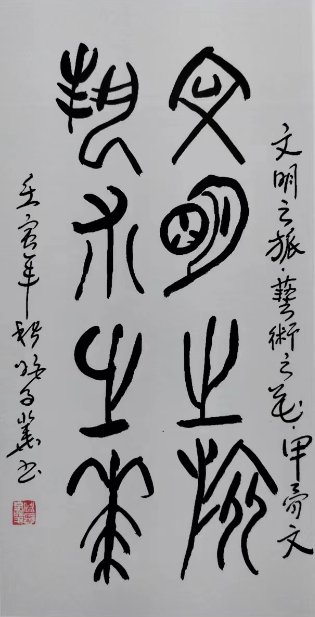 文明之旅·藝術之花·甲骨文
文明之旅
藝術之花
壬寅年書